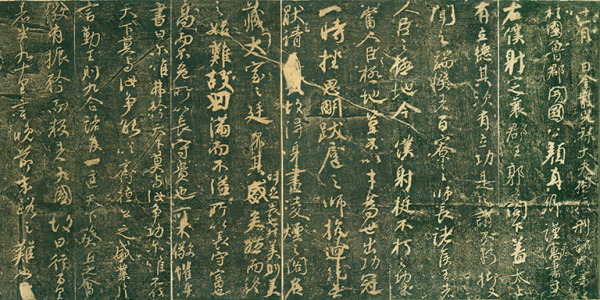 月 日金紫光祿大夫檢校刑部尚書上
柱國魯郡開國公顏真卿謹奉書于
右僕射定襄郡王郭公閤下蓋太上
有立德其次有立功是之謂不朽抑又
聞之端揆者百寮之師長諸侯王者
人臣之極地今僕射挺不朽之功業
當人臣極地豈不以才為世出功冠
一時挫思明跋扈之師抗迴紇無
厭之請故得身畫凌煙之閣名
藏太室之廷吁足畏也然美則美矣而終
之始難故曰滿而不溢所以長守富
也高而不危所以長守貴也可不儆懼乎
書曰爾唯弗矜天下莫與汝爭功爾唯不伐
天下莫與汝爭能以齊桓公之盛業片
言勤王則九合諸侯一匡天下葵丘之會
微有振矜而叛者九國故曰行百里
者半九十里言晚節末路之難也